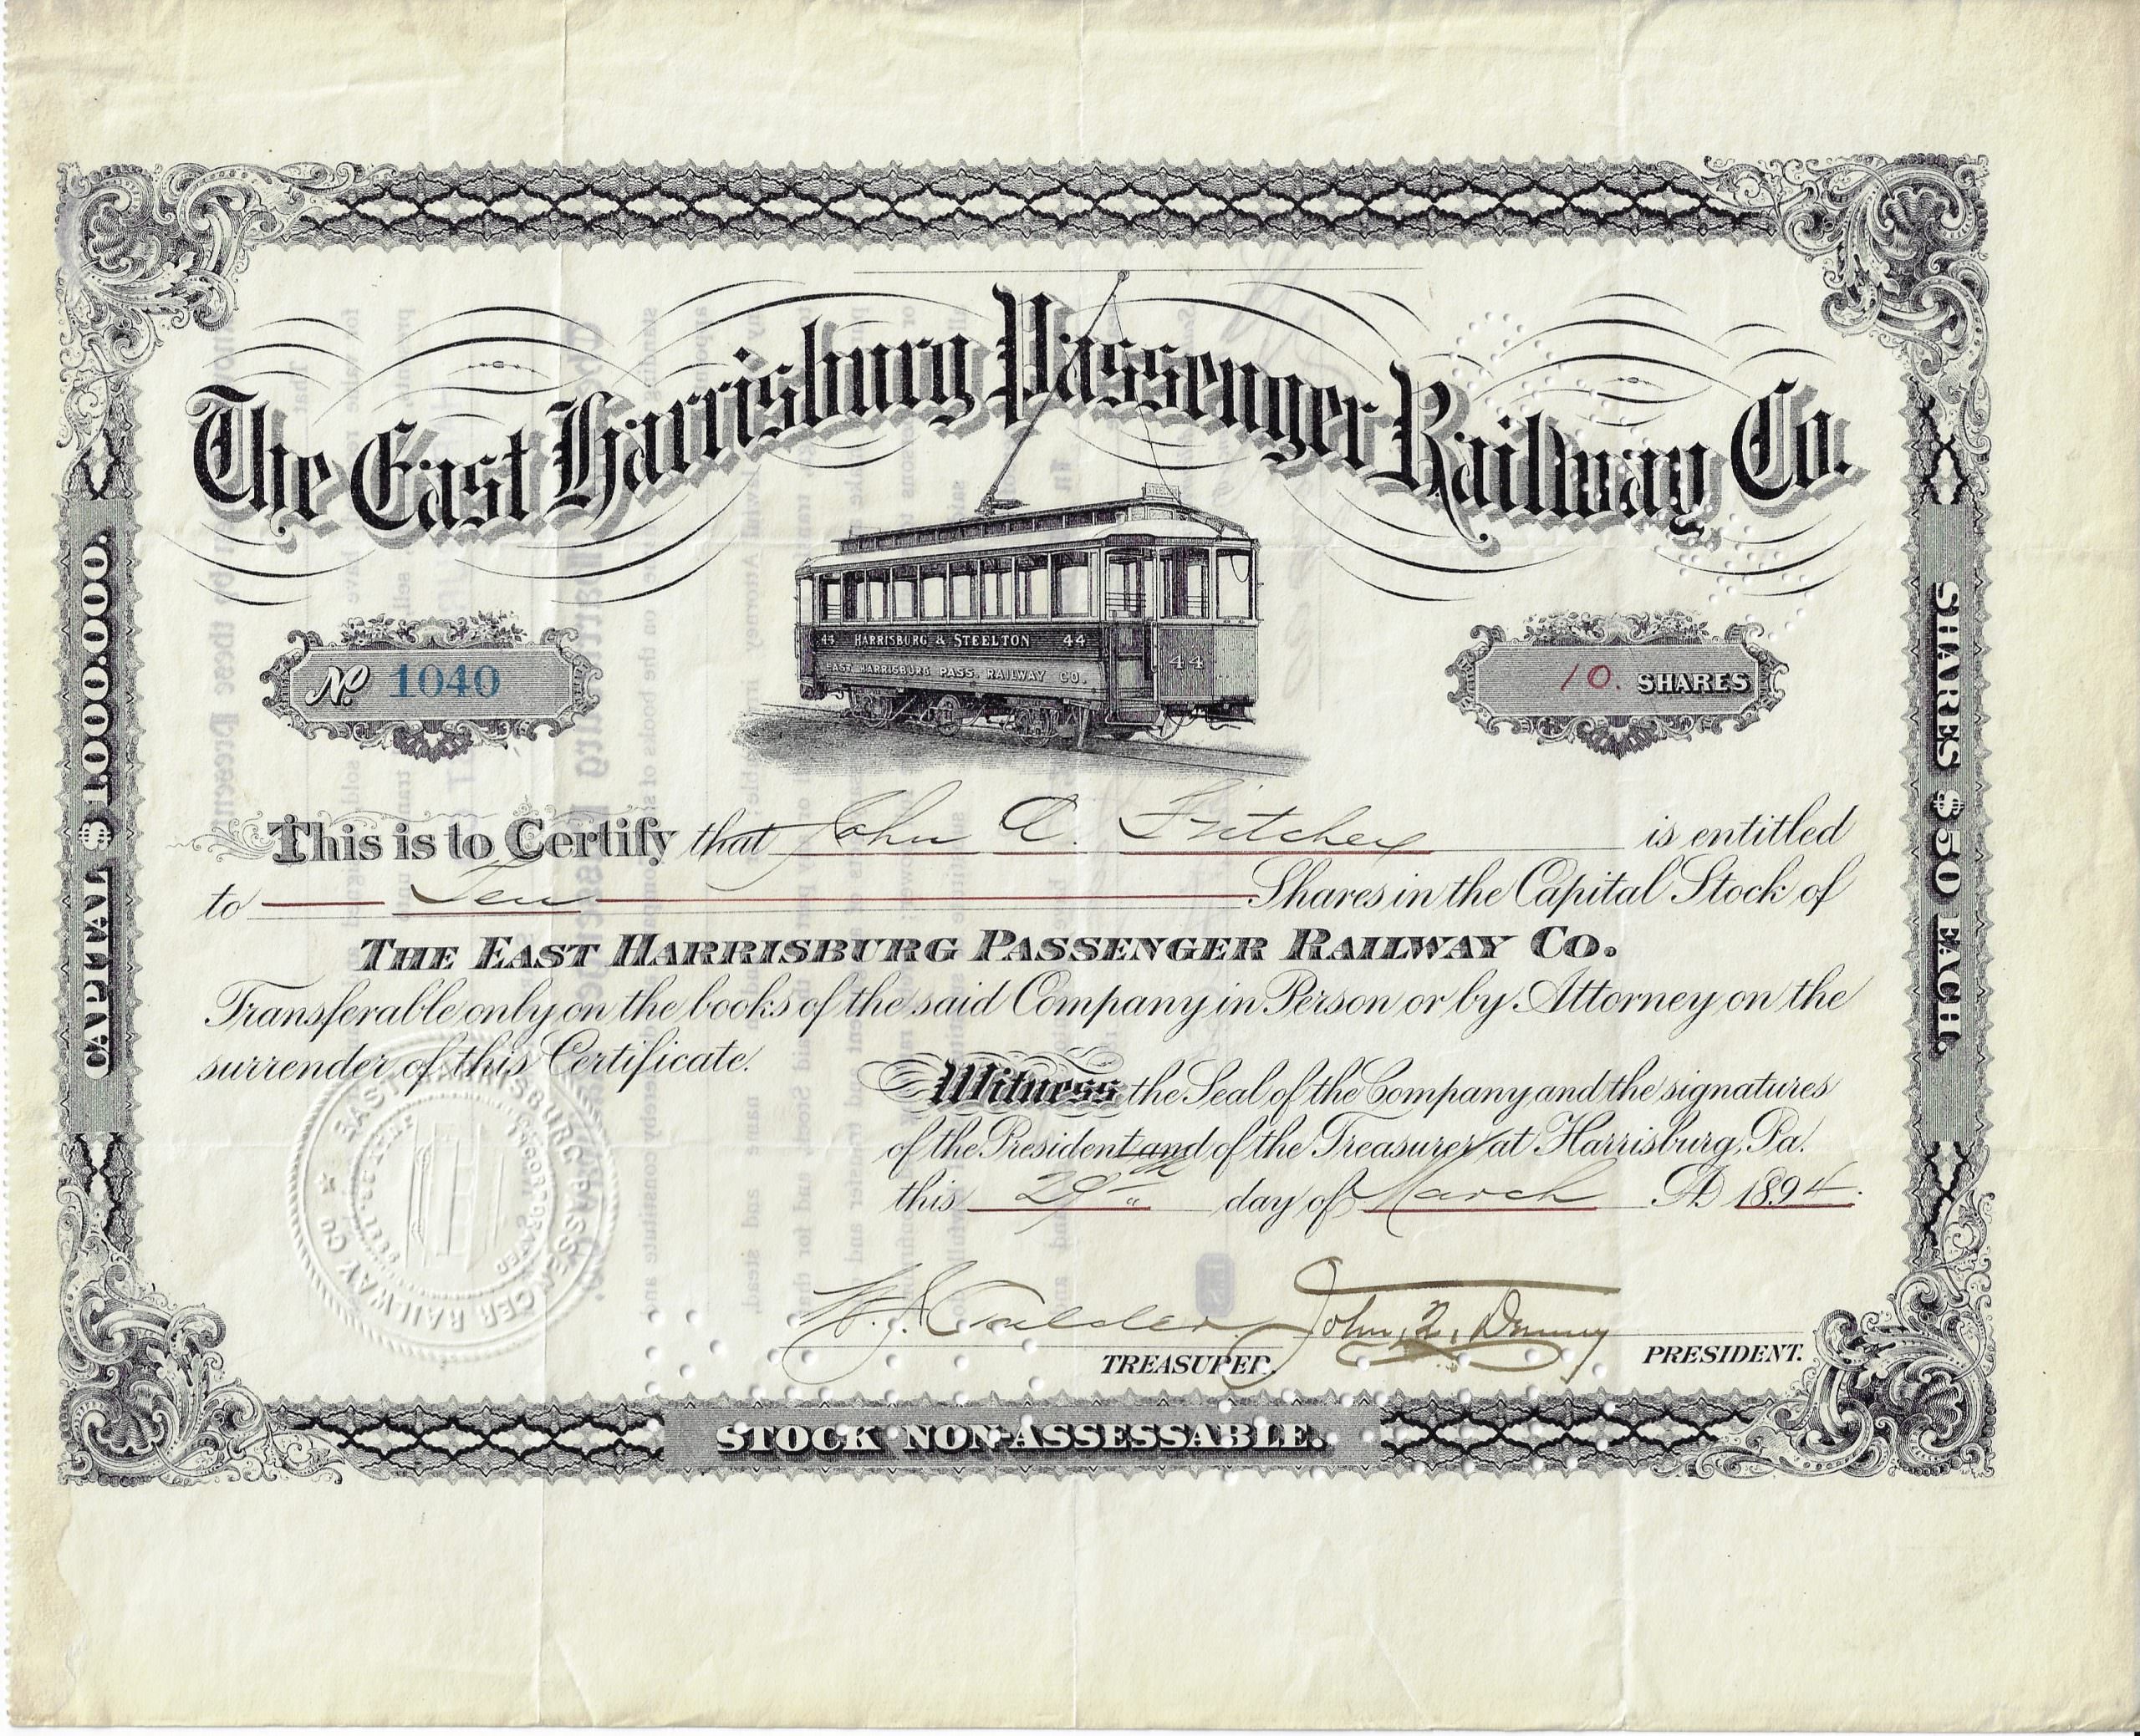 The East Harrisburg Passenger Railway Co.
CAPITAL $1.000.000.
SHARES $50 EACH.
No 1040
44 HARRISBURG & STEELTON 44
EAST HARRISBURG PASS. RAILWAY CO.
44
10. SHARES
This is to Certify that John A. Fritchey is entitled
to Ten Shares in the Capital Stock of
THE EAST HARRISBURG PASSENGER RAILWAY CO.
Transferable only on the books of the said Company in Person or by Attorney on the
surrender of this Certificate.
Witness the Seal of the Company and the signatures
of the President and of the Treasurer at Harrisburg, Pa.
this 29th day of March AD 1894.
EAST HARRISBURG PASSENGER RAILWAY CO
INCORPORATED
W. J. Calder
TREASURER.
John Q. Denney
PRESIDENT.
STOCK NON-ASSESSABLE.